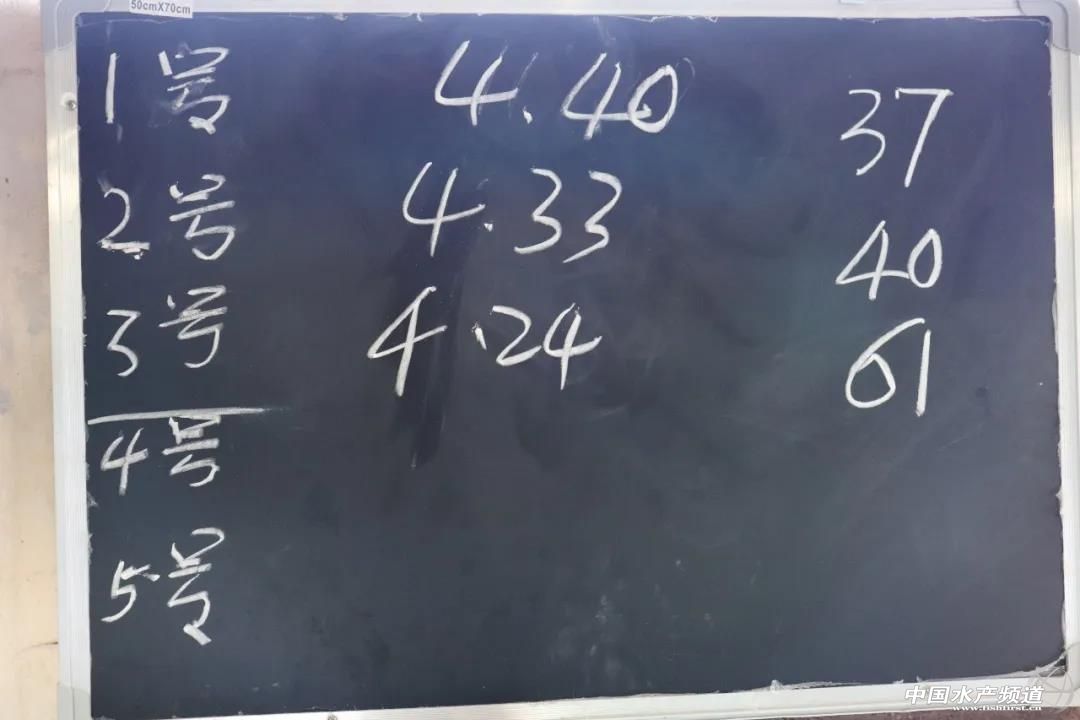 50cmX70cm
1号 4.40 37
2号 4.33 40
3号 4.24 61
4号
5号
中国水产频道
www.fishfirst.cn